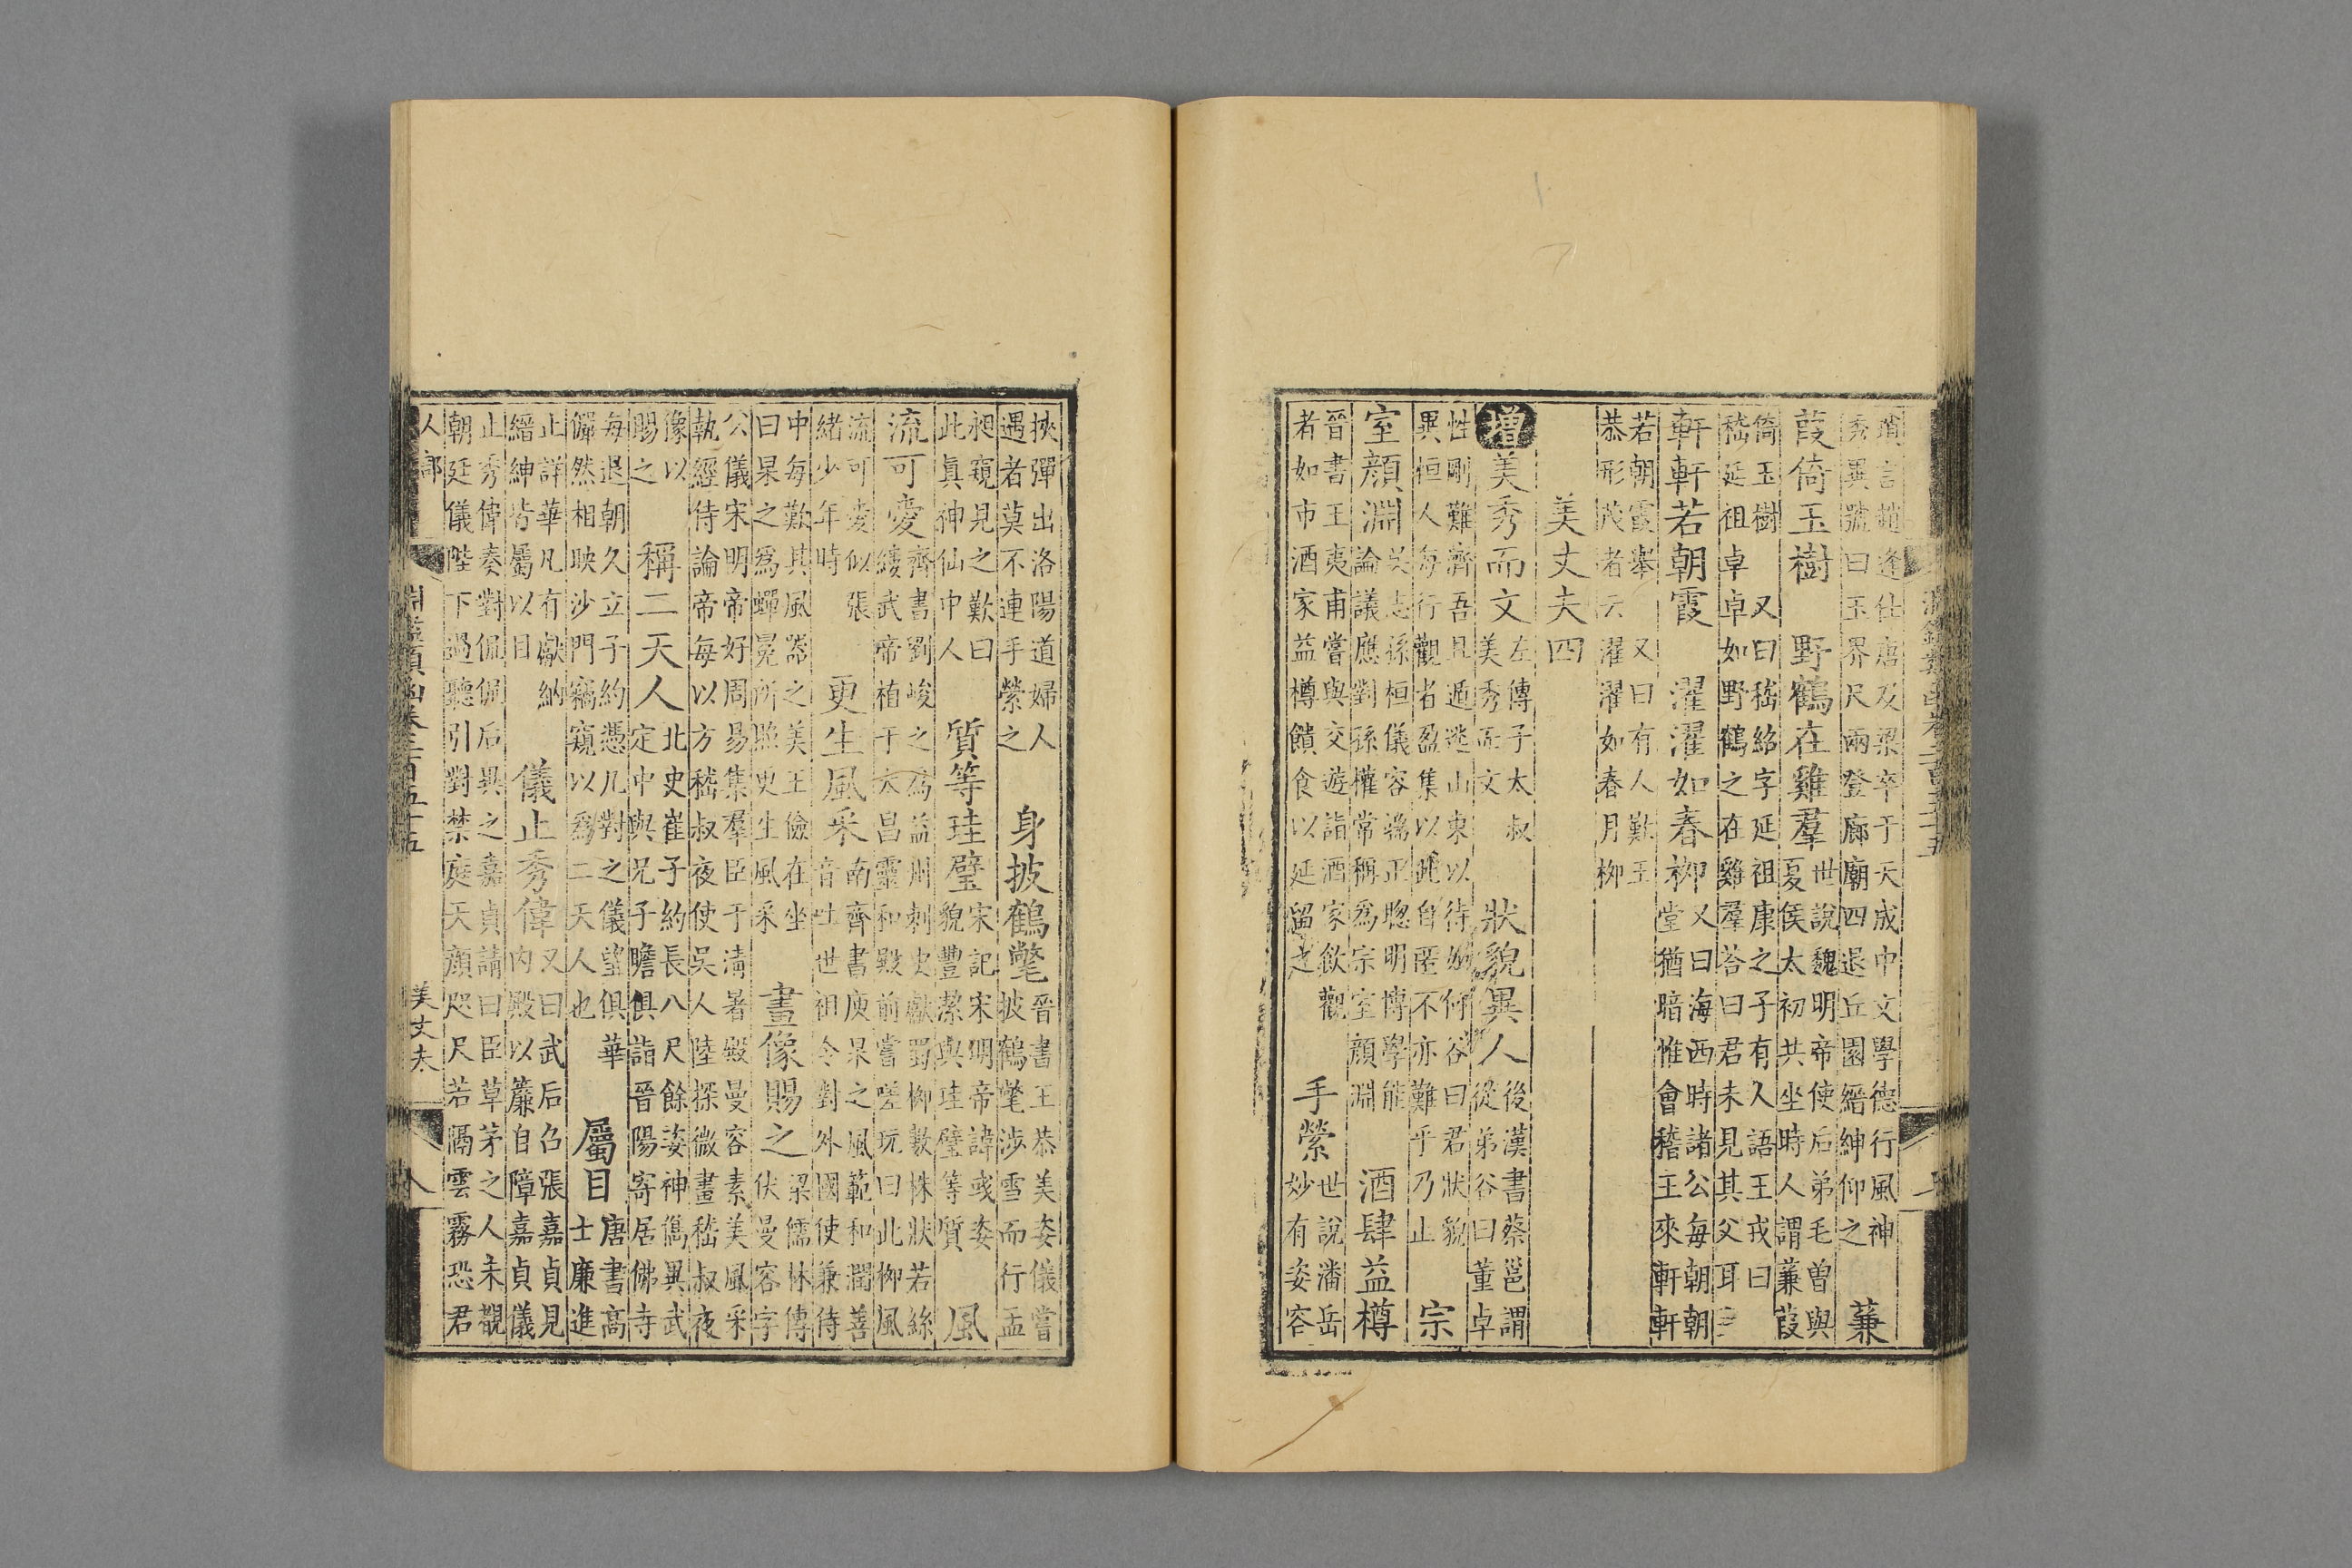 淵鑑類函卷二百五十五
瑣言趙逢仕唐及梁卒于天成中文學德行風神
秀異號曰玉界尺兩登廊廟四退丘園縉紳仰之
蒹
葭倚玉樹 野鶴在雞羣
世說魏明帝使后弟毛曾與
夏侯太初共坐時人謂蒹葭
倚玉樹 又曰嵇紹字延祖康之子有人語王戎曰
嵇延祖卓卓如野鶴之在雞羣荅曰君未見其父耳
軒軒若朝霞 濯濯如春柳
又曰海西時諸公每朝朝
堂猶暗惟會稽王來軒軒
若朝霞舉 又曰有人歎王
恭形茂者云濯濯如春月柳
美丈夫四
增 美秀而文
左傳子太叔
美秀而文
狀貌異人
後漢書蔡邕謂
從弟谷曰董卓
性剛難濟吾且遁逃山東以待如何谷曰君狀貌
異恒人每行觀者盈集以此自匿不亦難乎乃止
宗
室顏淵
吳志孫桓儀容端正聰明博學能
論議應對孫權常稱為宗室顏淵
酒肆益樽
晉書王夷甫嘗與交遊詣酒家飲觀
者如市酒家益樽饋食以延留之
手縈
世說潘岳
妙有姿容
挾彈出洛陽道婦人
遇者莫不連手縈之
身披鶴氅
晉書王恭美姿儀嘗
披鶴氅涉雪而行孟
昶窺見之歎曰
此眞神仙中人
質等珪璧
宋記宋明帝諱彧姿
貌豐潔與珪璧等質
風
流可愛
齊書劉峻之為益州刺史獻蜀柳數株狀若絲
縷武帝植于太昌靈和殿前嘗嗟玩曰此柳風
流可愛似張
緒少年時
更生風采
南齊書庾杲之風範和潤善
音吐世祖令對外國使兼侍
中每歎其風器之美王儉在坐
曰杲之為蟬冕所照更生風采
畫像賜之
梁儒林傳
伏曼容字
公儀宋明帝好周易集羣臣于清暑殿曼容素美風采
執經侍論帝每以方嵇叔夜使吳人陸探微畫嵇叔夜
像以
賜之
稱二天人
北史崔子約長八尺餘姿神儁異武
定中與兄子瞻俱詣晉陽寄居佛寺
每退朝久立子約憑几對之儀望俱華
儼然相映沙門竊窺以為二天人也
屬目
唐書高
士廉進
止詳華凡有獻納
縉紳皆屬以目
儀止秀偉
又曰武后召張嘉貞見
內殿以簾自障嘉貞儀
止秀偉奏對侃侃后異之嘉貞請曰臣草茅之人未覩
朝廷儀陛下過聽引對禁庭天顏咫尺若隔雲霧恐君
人部 淵鑑類函卷二百五十五 美丈夫 八